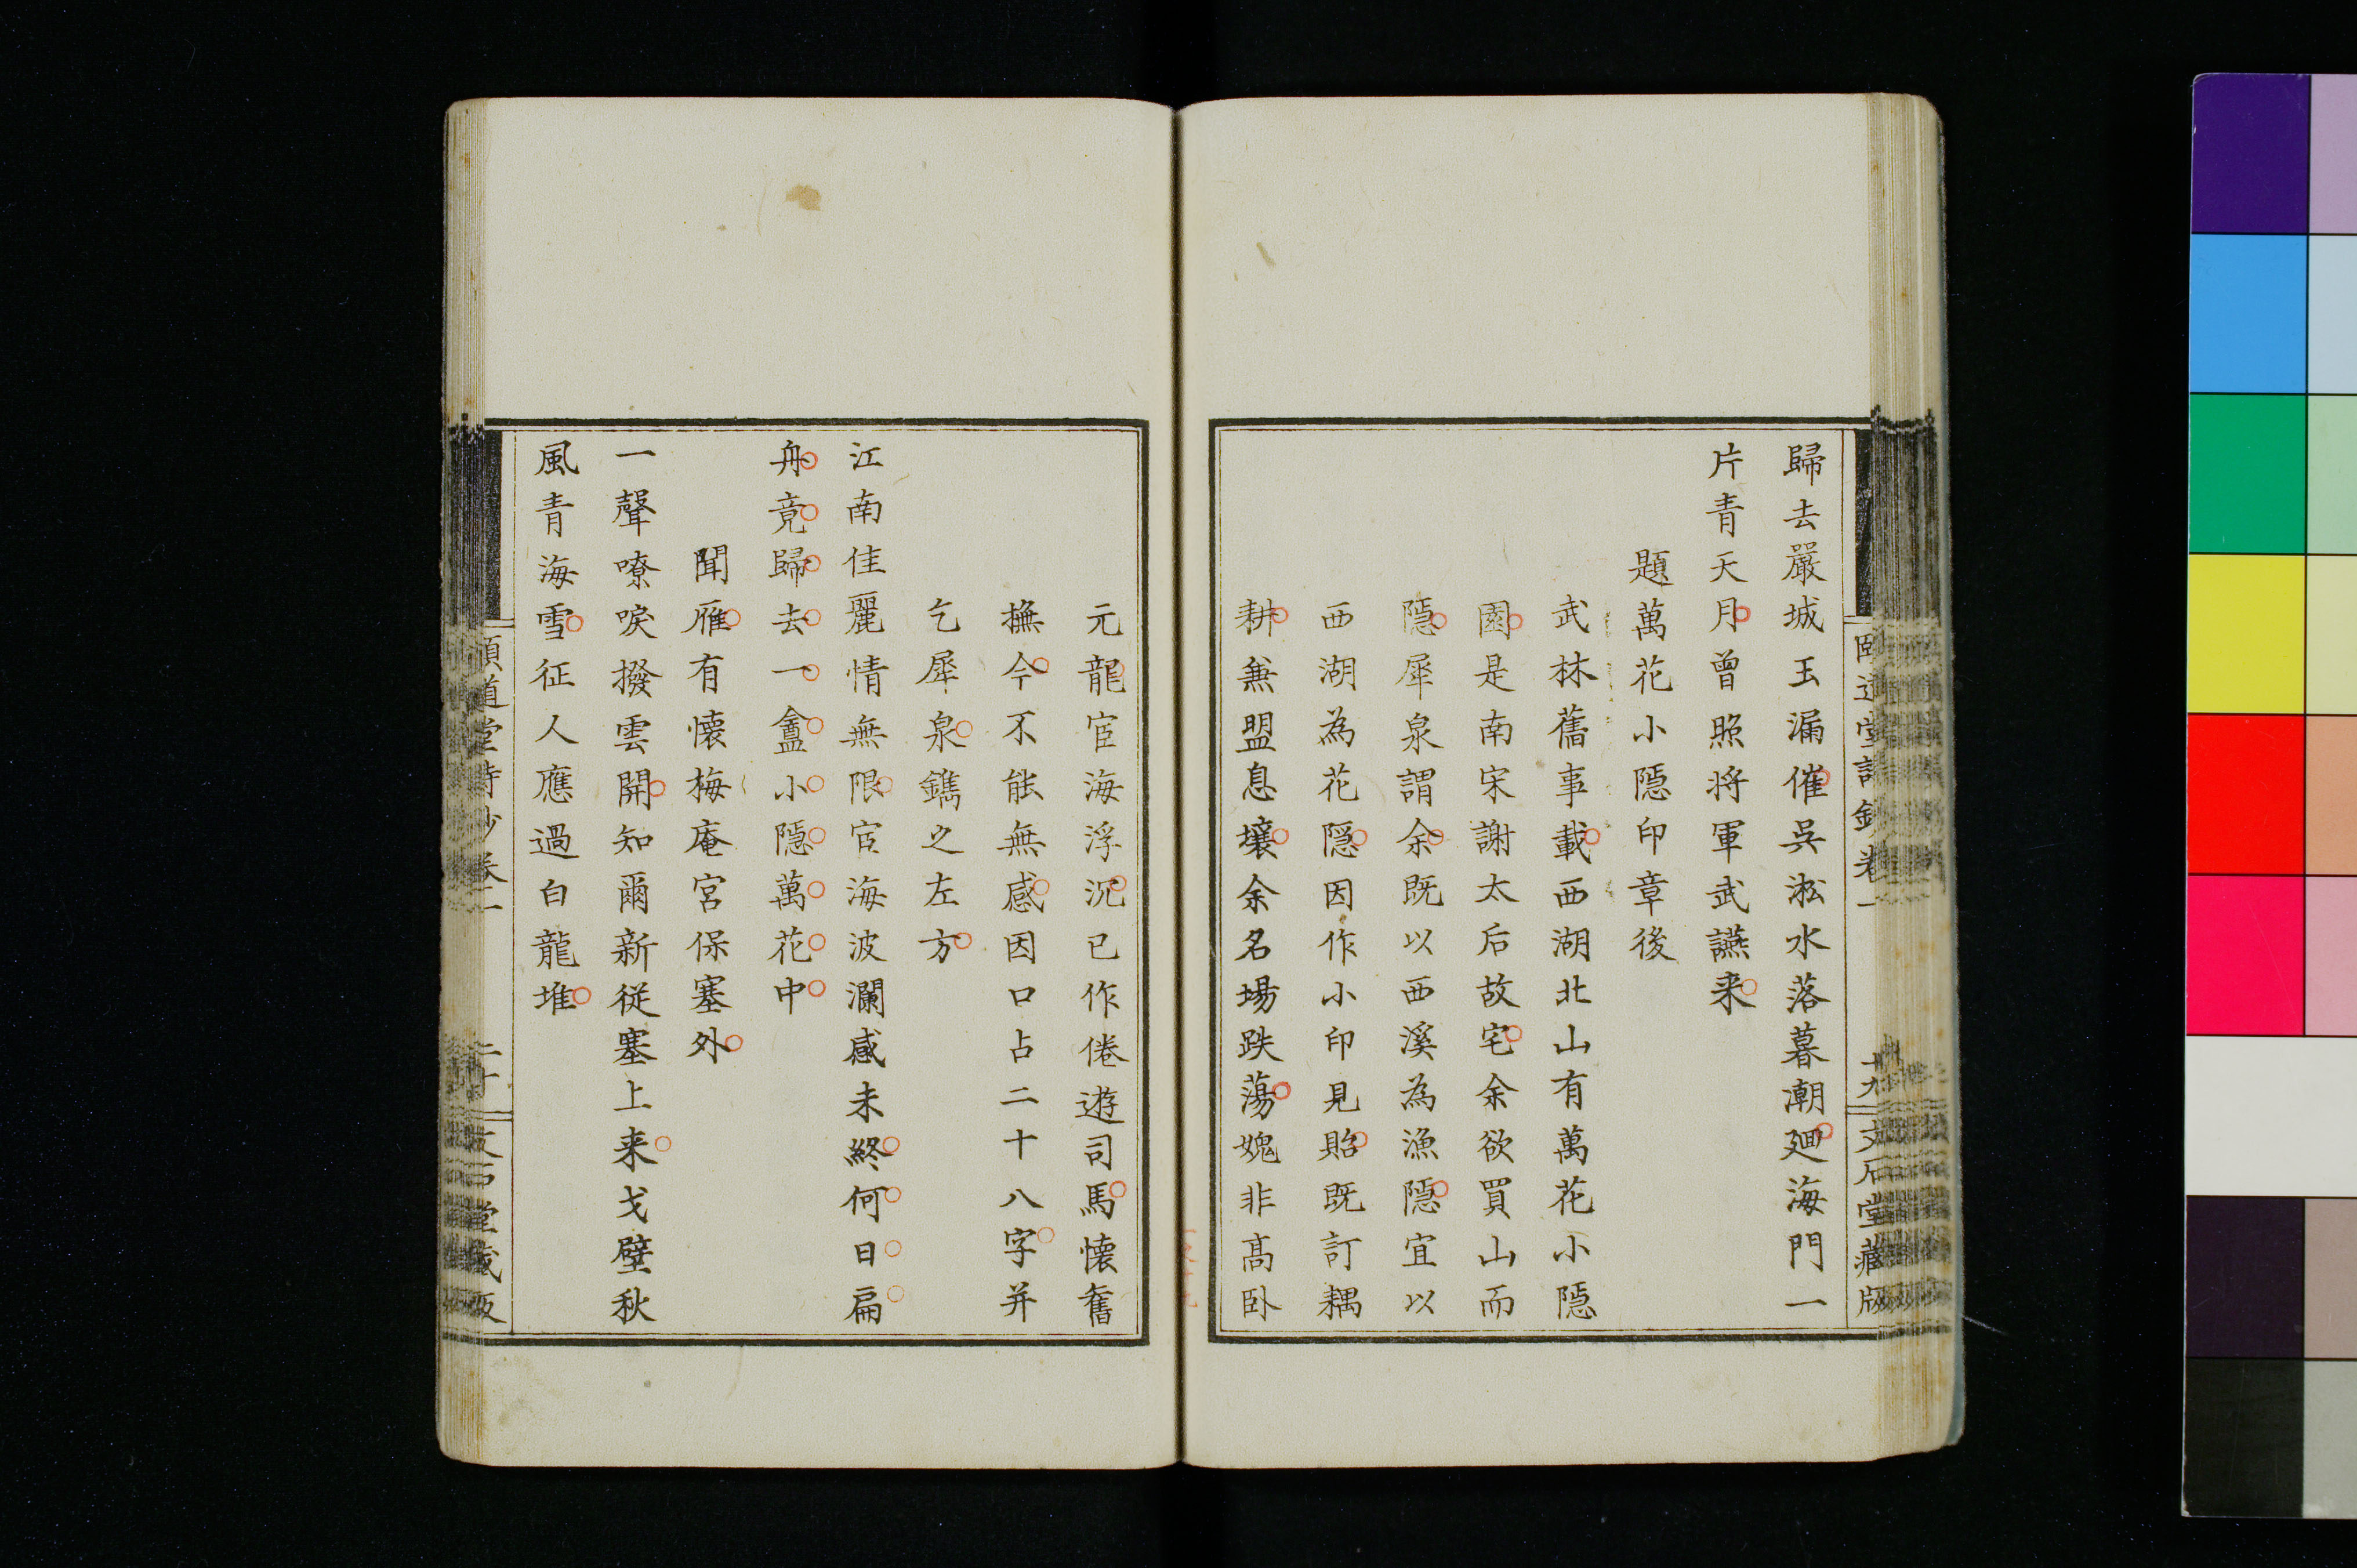 歸去嚴城玉漏催呉淞水落暮潮廻海門一
片青天月曾照将軍武讌来
題萬花小隱印章後
武林舊事載西湖北山有萬花小隱
園是南宋謝太后故宅余欲買山而
隱犀泉謂余既以西溪為漁隱宜以
西湖為花隱因作小印見貽既訂耦
耕兼盟息壤余名場跌蕩媿非高卧
元龍宦海浮沉已作倦遊司馬懐舊
撫今不能無感因口占二十八字并
乞犀泉鐫之左方
江南佳麗情無限宦海波瀾感未終何日扁
舟竟歸去一龕小隱萬花中
聞雁有懐梅庵宮保塞外
一聲嘹唳撥雲開知爾新従塞上来戈壁秋
風青海雪征人應過白龍堆
頤道堂詩鈔卷二
二十
文石堂藏版